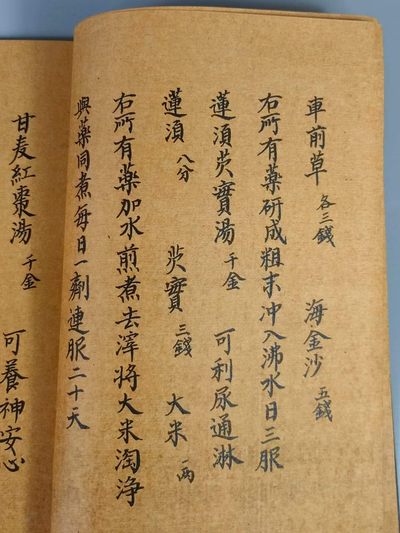 車前草 各三錢 海金沙 五錢
右所有藥研成粗末冲入沸水日三服
蓮須芡實湯 千金 可利尿通淋
蓮須 八分 芡實 三錢 大米 一两
右所有藥加水煎煮去滓將大米淘净
與藥同煮每日一劑連服二十天
甘麦紅棗湯 千金 可養神安心